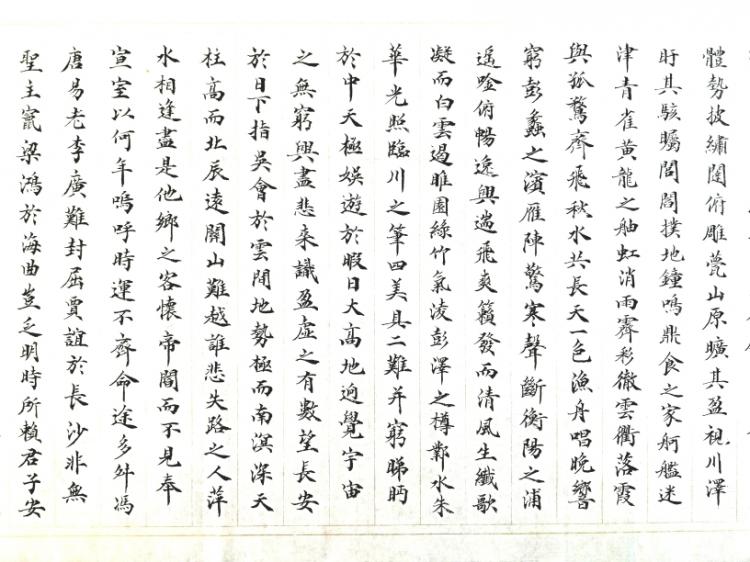 體勢披繡闥俯雕甍山原曠其盈視川澤
盱其駭矚閭閻撲地鐘鳴鼎食之家舸艦迷
津青雀黃龍之舳虹消雨霽彩徹雲衢落霞
與孤鶩齊飛秋水共長天一色漁舟唱晚響
窮彭蠡之濱雁陣驚寒聲斷衡陽之浦
遥唫俯暢逸興遄飛爽籟發而清風生纖歌
凝而白雲遏睢園綠竹氣凌彭澤之樽鄴水朱
華光照臨川之筆四美具二難并窮睇眄
於中天極娛遊於暇日天高地迥覺宇宙
之無窮興盡悲來識盈虛之有數望長安
於日下指吳會於雲間地勢極而南溟深天
柱高而北辰遠關山難越誰悲失路之人萍
水相逢盡是他鄉之客懷帝閽而不見奉
宣室以何年嗚呼時運不齊命途多舛馮
唐易老李廣難封屈賈誼於長沙非無
聖主竄梁鴻於海曲豈乏明時所賴君子安